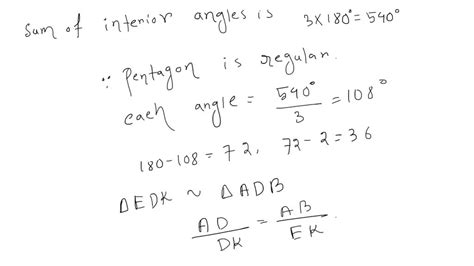 Sum of interior angles is 3×180°=540°
∵ Pentagon is regular.
each angle = 540°/3 = 108°
180-108=72, 72-2=36
ΔEDK ~ ΔADB
AD/DK = AB/EK.